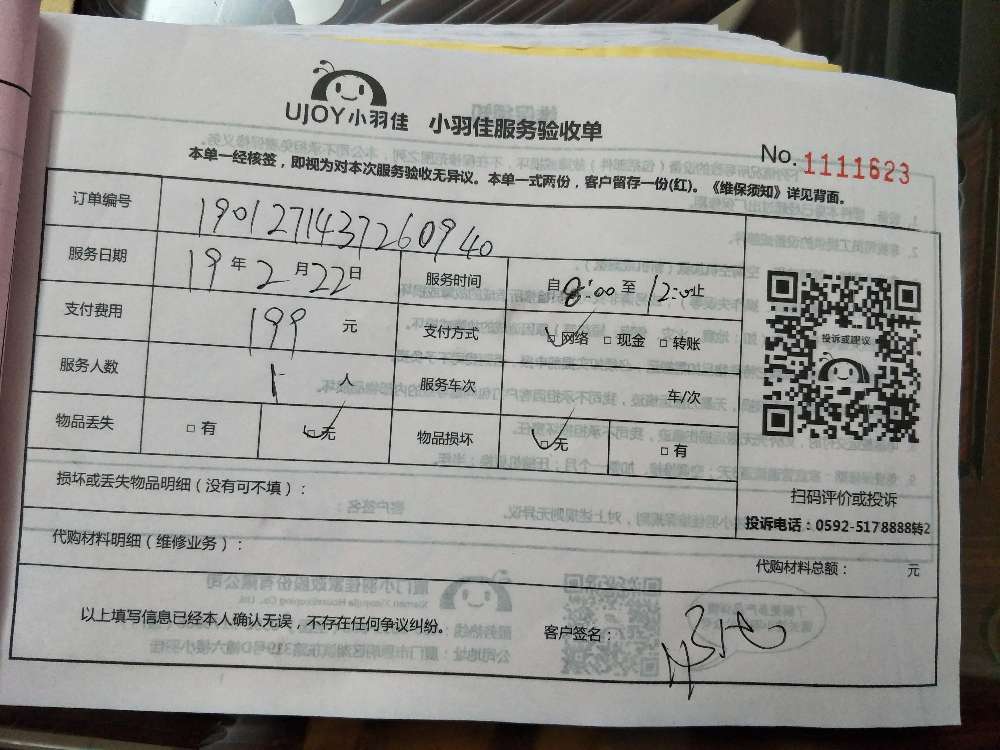 UJOY小羽佳 小羽佳服务验收单
No. 1111623
本单一经核签，即视为对本次服务验收无异议。本单一式两份，客户留存一份(红)。《维保须知》详见背面。
订单编号 1901271437260940
服务日期 19年2月22日 服务时间 自8:00至12:00止
支付费用 199元 支付方式 □网络 □现金 □转账
服务人数 1人 服务车次 车/次
物品丢失 □有 □无 物品损坏 □无 □有
投诉或建议
扫码评价或投诉
投诉电话：0592-5178888转2
损坏或丢失物品明细（没有可不填）：
代购材料明细（维修业务）：
代购材料总额： 元
以上填写信息已经本人确认无误，不存在任何争议纠纷。 客户签名：